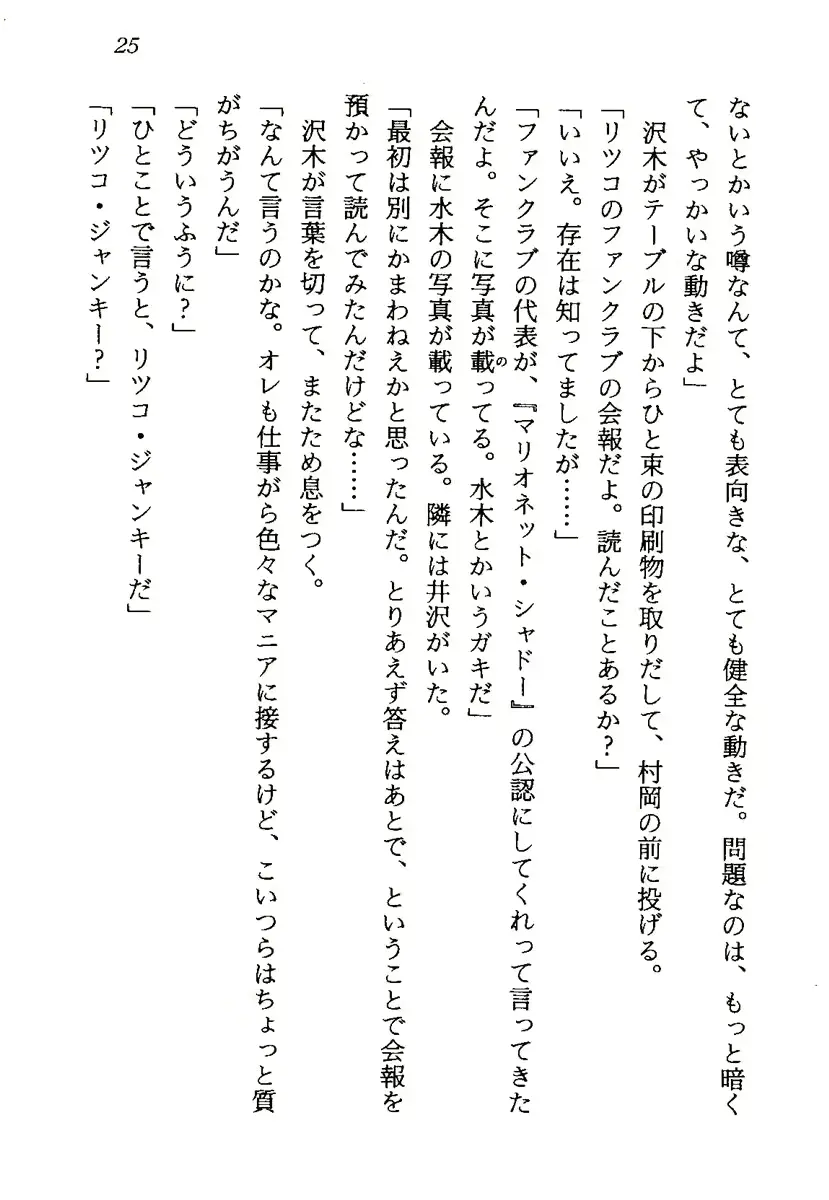 25
ないとかいう噂なんて、とても表向きな、とても健全な動きだ。問題なのは、もっと暗く
て、やっかいな動きだよ」
沢木がテーブルの下からひと束の印刷物を取りだして、村岡の前に投げる。
「リツコのファンクラブの会報だよ。読んだことあるか?」
「いいえ。存在は知ってましたが……」
「ファンクラブの代表が、『マリオネット・シャドー』の公認にしてくれって言ってきた
んだよ。そこに写真が載ってる。水木とかいうガキだ」
会報に水木の写真が載っている。隣には井沢がいた。
「最初は別にかまわねえかと思ったんだ。とりあえず答えはあとで、ということで会報を
預かって読んでみたんだけどな……」
沢木が言葉を切って、またため息をつく。
「なんて言うのかな。オレも仕事がら色々なマニアに接するけど、こいつらはちょっと質
がちがうんだ」
「どういうふうに?」
「ひとことで言うと、リツコ・ジャンキーだ」
「リツコ・ジャンキー?」